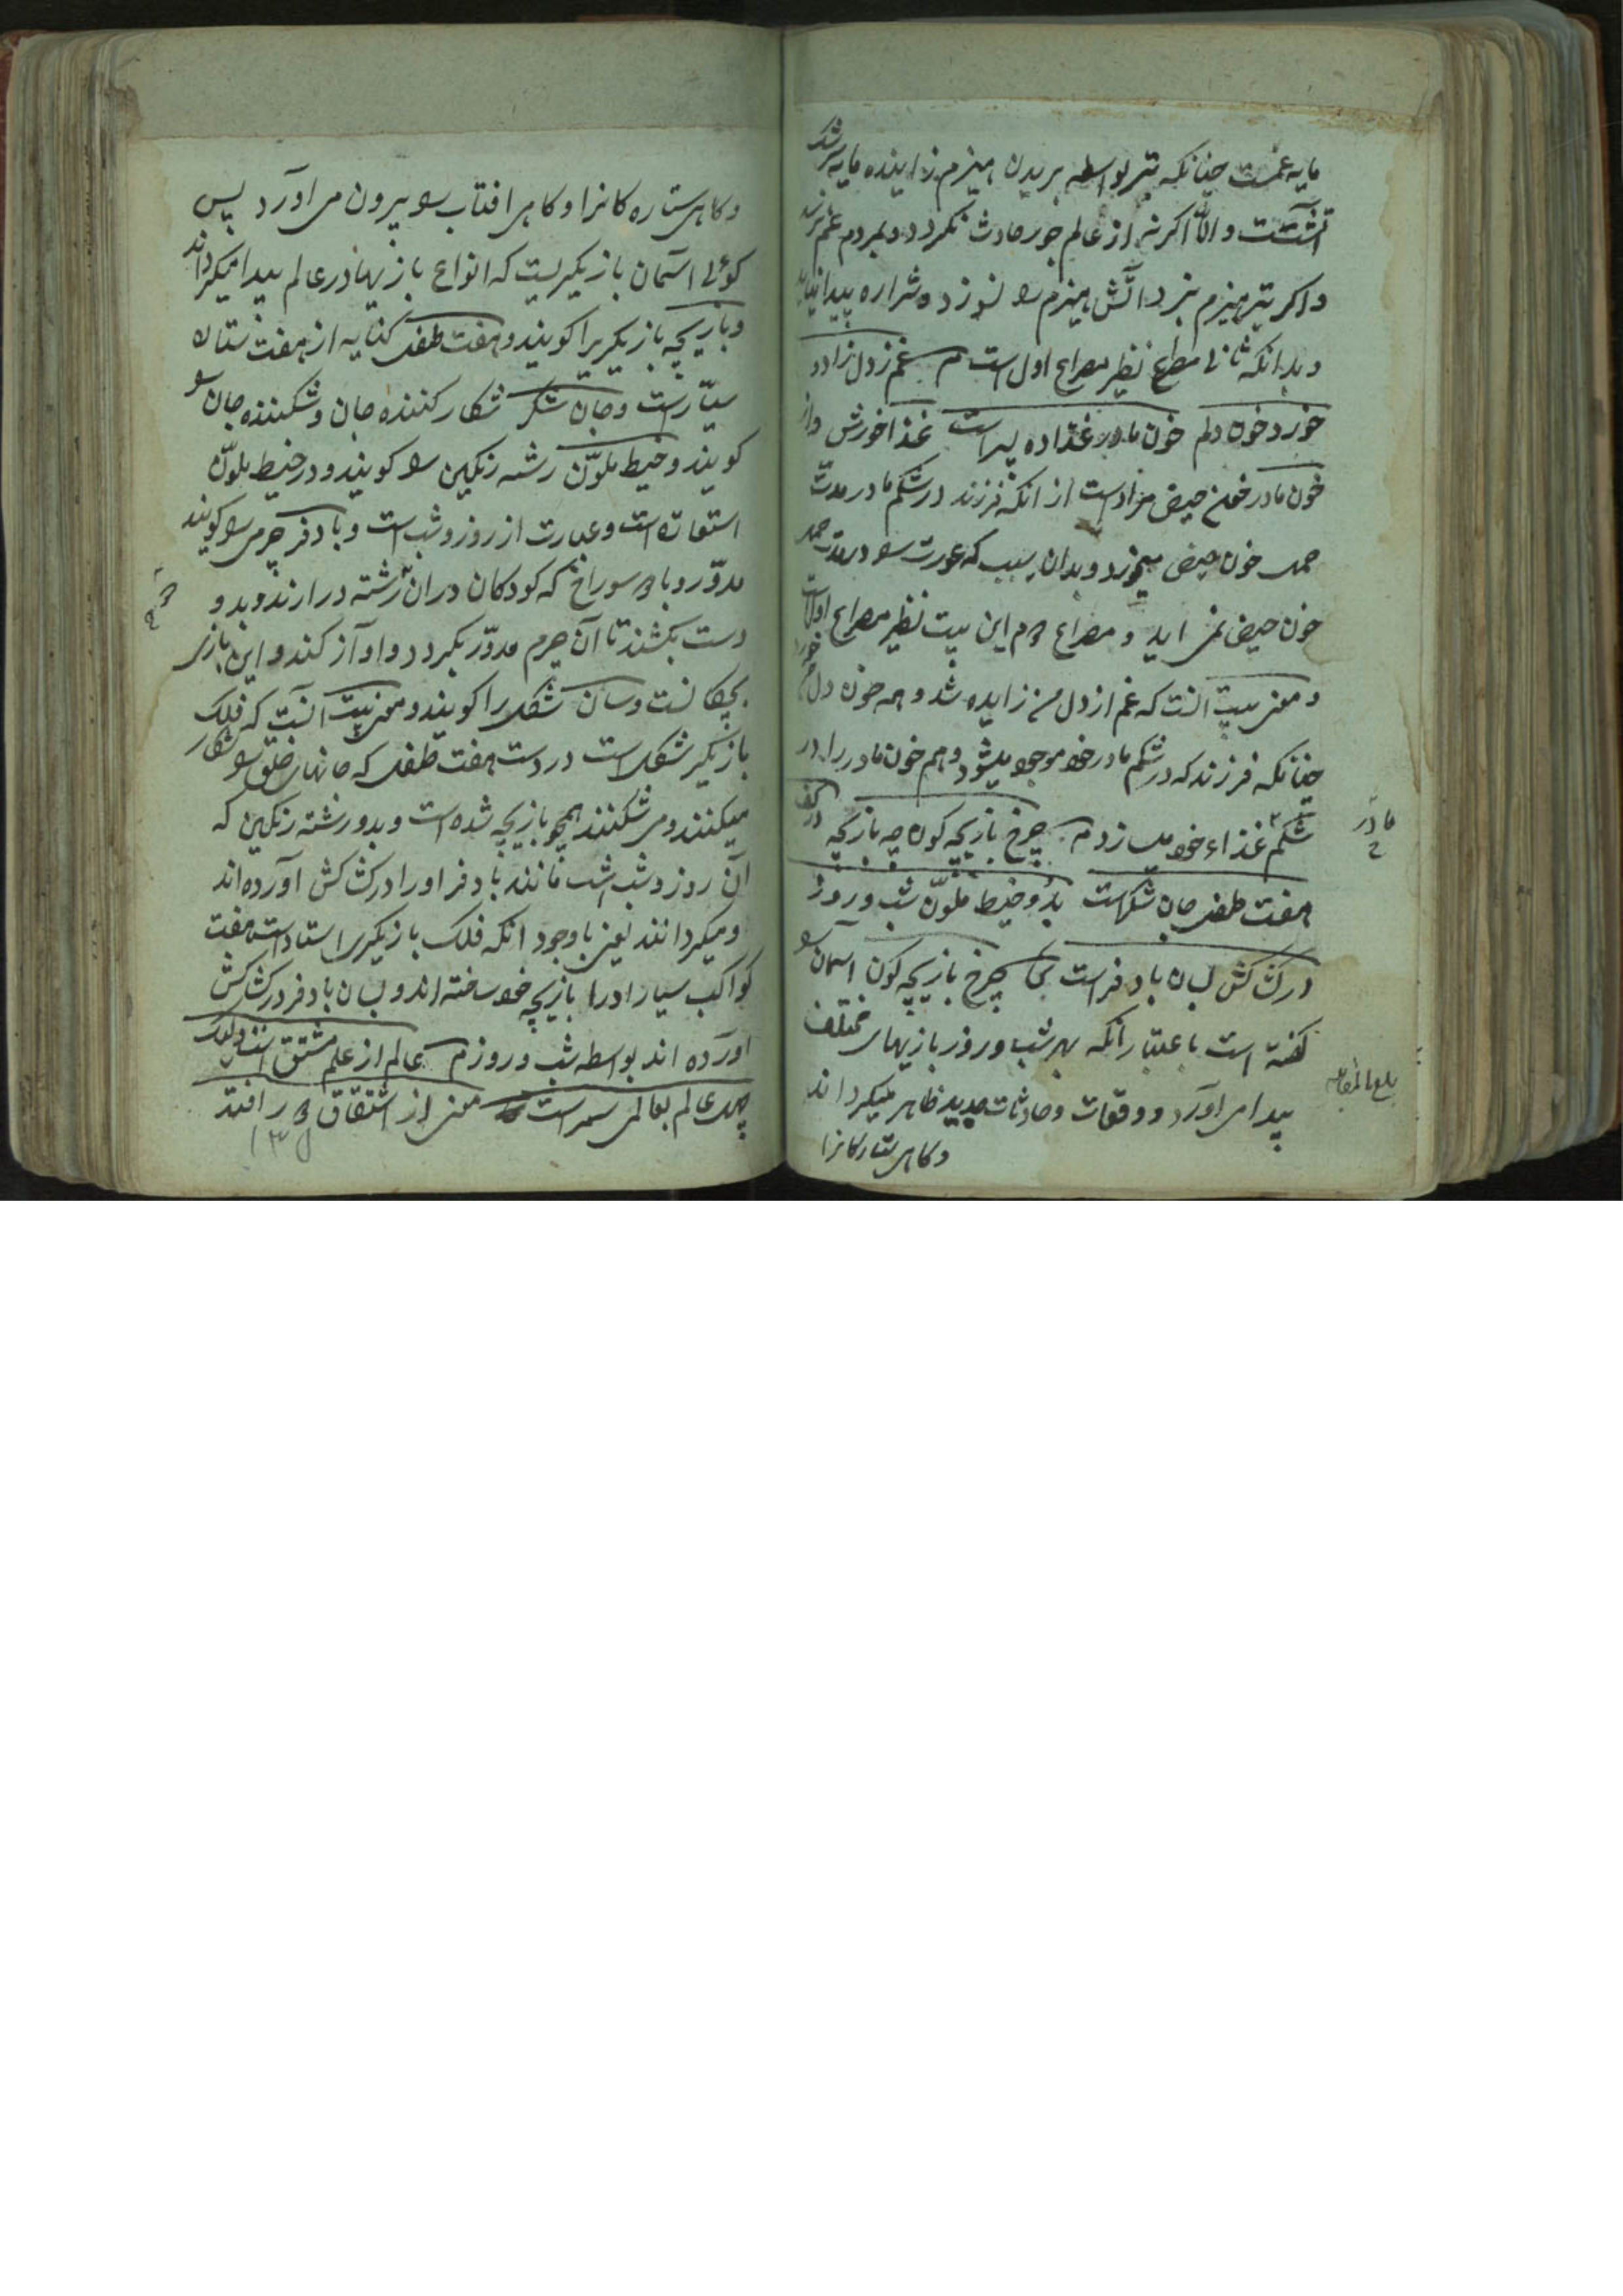 مایه غمست چنانکه تبر بواسطه بریدن هیزم زاینده مایه شرر
آتشست والا اگر نه از عالم جور حادث نکردد و بمردم غم نرسد
و اگر تبر هیزم نبرد آتش هیزم را نسوزد و شراره پیدا نیاید
و بدانکه ثانی مطلع نظیر مصراع اول است م غم ز دل زاد و
خورد خون دلم خون مادر غذاده پسر است غذا خورش و از
خون مادر خون حیض مرادست از آنکه فرزند در شکم مادر مدت
حمل خون حیض میخورد و بدان سبب که عورت را در مدت حمل
خون حیض نمی اید و مصراع دوم این بیت نظیر مصراع اولست
و معنی بیت انست که غم از دل من زاییده شد و همه خون دل من خورد
چنانکه فرزند که در شکم مادر خود موجود میشود و هم خون مادر را در
شکم غذاء خود میسازد م چرخ بازیچه کون چه بازیچه در کف
مادر
هفت طفل جان شکر است بدو خیط ملوّن شب و روز
در کشاکش بسان بادفر است چرخ بازیچه کون اسمان را
کفته است باعتبار آنکه بهر شب و روز بازیهای مختلف
پیدا می اورد و وقعات و حادثات جدید ظاهر میکرداند
بلغ المقابله
و کاهی ستارکانرا
و کاهی ستاره کانرا و کاهی افتاب را بیرون می اورد پس
کوئی اسمان بازیکریست که انواع بازیها در عالم پیدا میکرداند
و بازیچه بازیکریرا کویند و هفت طفل کنایه از هفت ستاره
سیّارست و جان شکر شکار کننده جان و شکننده جان را
کویند و خیط ملوّن رشته رنکین را کویند و در خیط ملوّن
استعاره است و عبارت از روز و شب است و بادفر جرمی را کویند
مدوّر و با دو سوراخ که کودکان در ان رشته درارند و بدو
دست بکشند تا آن جرم مدوّر بکردد و اواز کند و این بازی
بچکانست و سان شکل را کویند و معنی بیت آنست که فلک
بازیکر شکل است در دست هفت طفل که جانهای خلق را شکار
میکنند و می شکنند همچو بازیچه شده است و بدو رشته رنکین که
آن روز و شب است مانند بادفر او را در کشاکش آورده اند
و میکردانند یعنی با وجود انکه فلک بازیکری استاد است هفت
کواکب سیار او را بازیچه خود ساخته اند و بسان بادفر در کشاکش
اورده اند بواسطه شب و روز م عالم از علم مشتق است ولیک
جهل عالم بعالمی سمر است معنی از اشتقاق دور افتد